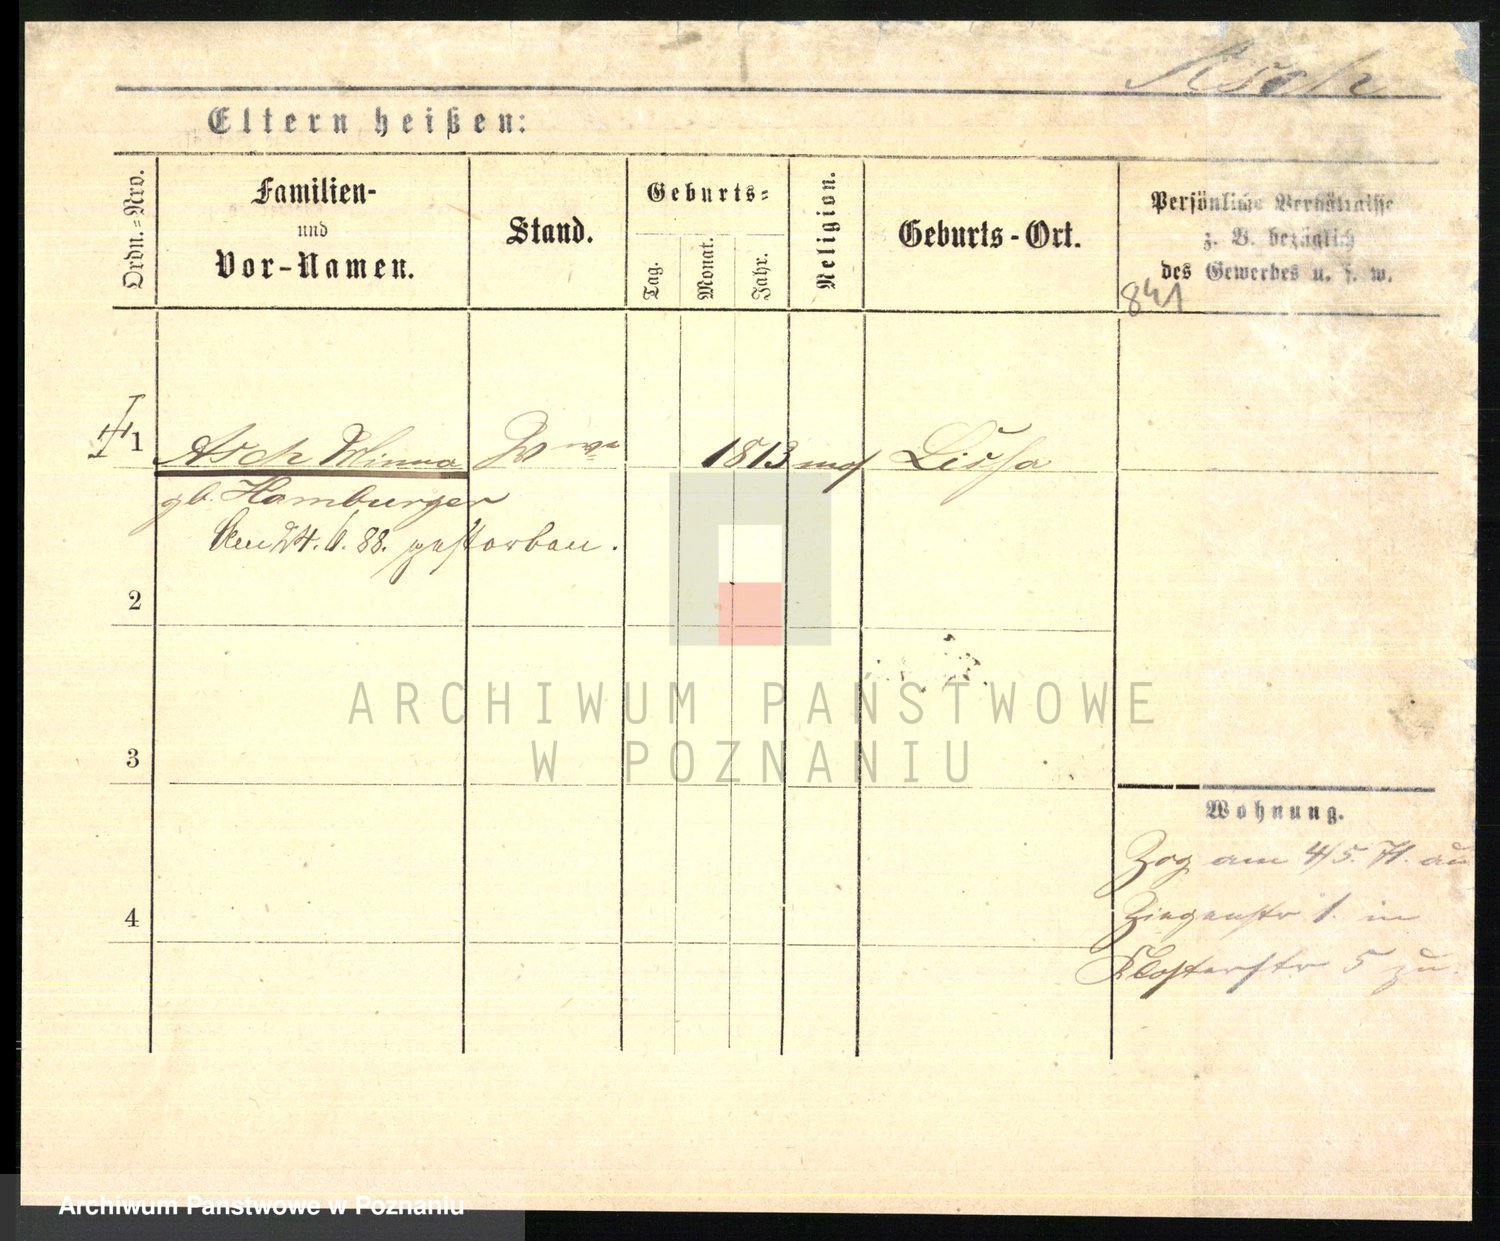 Asch
Eltern heißen:
Ordn.=Nro.
Familien-
und
Vor-Namen.
Stand.
Geburts=
Tag.
Monat.
Jahr.
Religion.
Geburts-Ort.
Persönliche Verhältnisse
z. B. bezüglich
des Gewerbes u. s. w.
841
1 Asch Minna Wwe 1813 mos Lissa
gb. Hamburger
den 24. 6. 88. gestorben.
2
3
4
Wohnung.
Zog am 4/5. 71. au
Ziegenstr 1. in
Klosterstr 5 zu.
ARCHIWUM PAŃSTWOWE
W POZNANIU
Archiwum Państwowe w Poznaniu